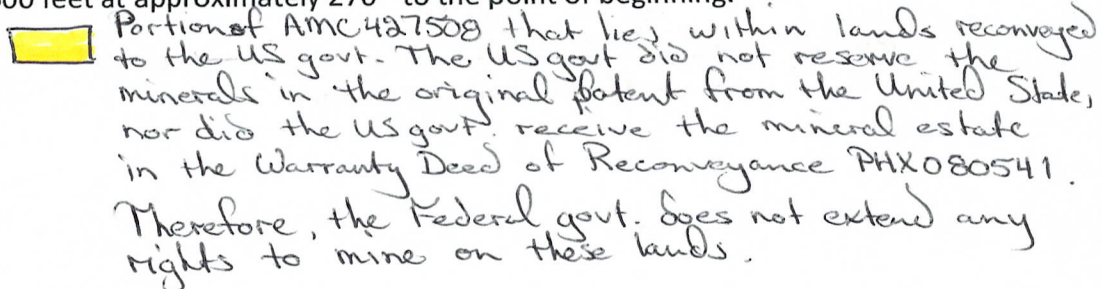 00 feet at approximately 270° to the point of beginning.
Portion of AMC427508 that lies within lands reconveyed
to the US govt. The US govt did not reserve the
minerals in the original patent from the United State,
nor did the US govt. receive the mineral estate
in the Warranty Deed of Reconveyance PHX080541.
Therefore, the Federal govt. does not extend any
rights to mine on these lands.